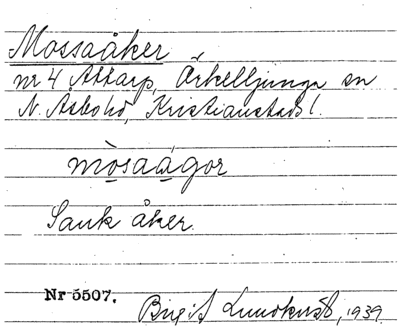 Mossaåker
nr 4 Attarp, Örkelljunga sn
N. Åsbo hd, Kristianstads l.
mòsaågor
Sank åker.
Nr 5507.
Birgit Lundkvist, 1939